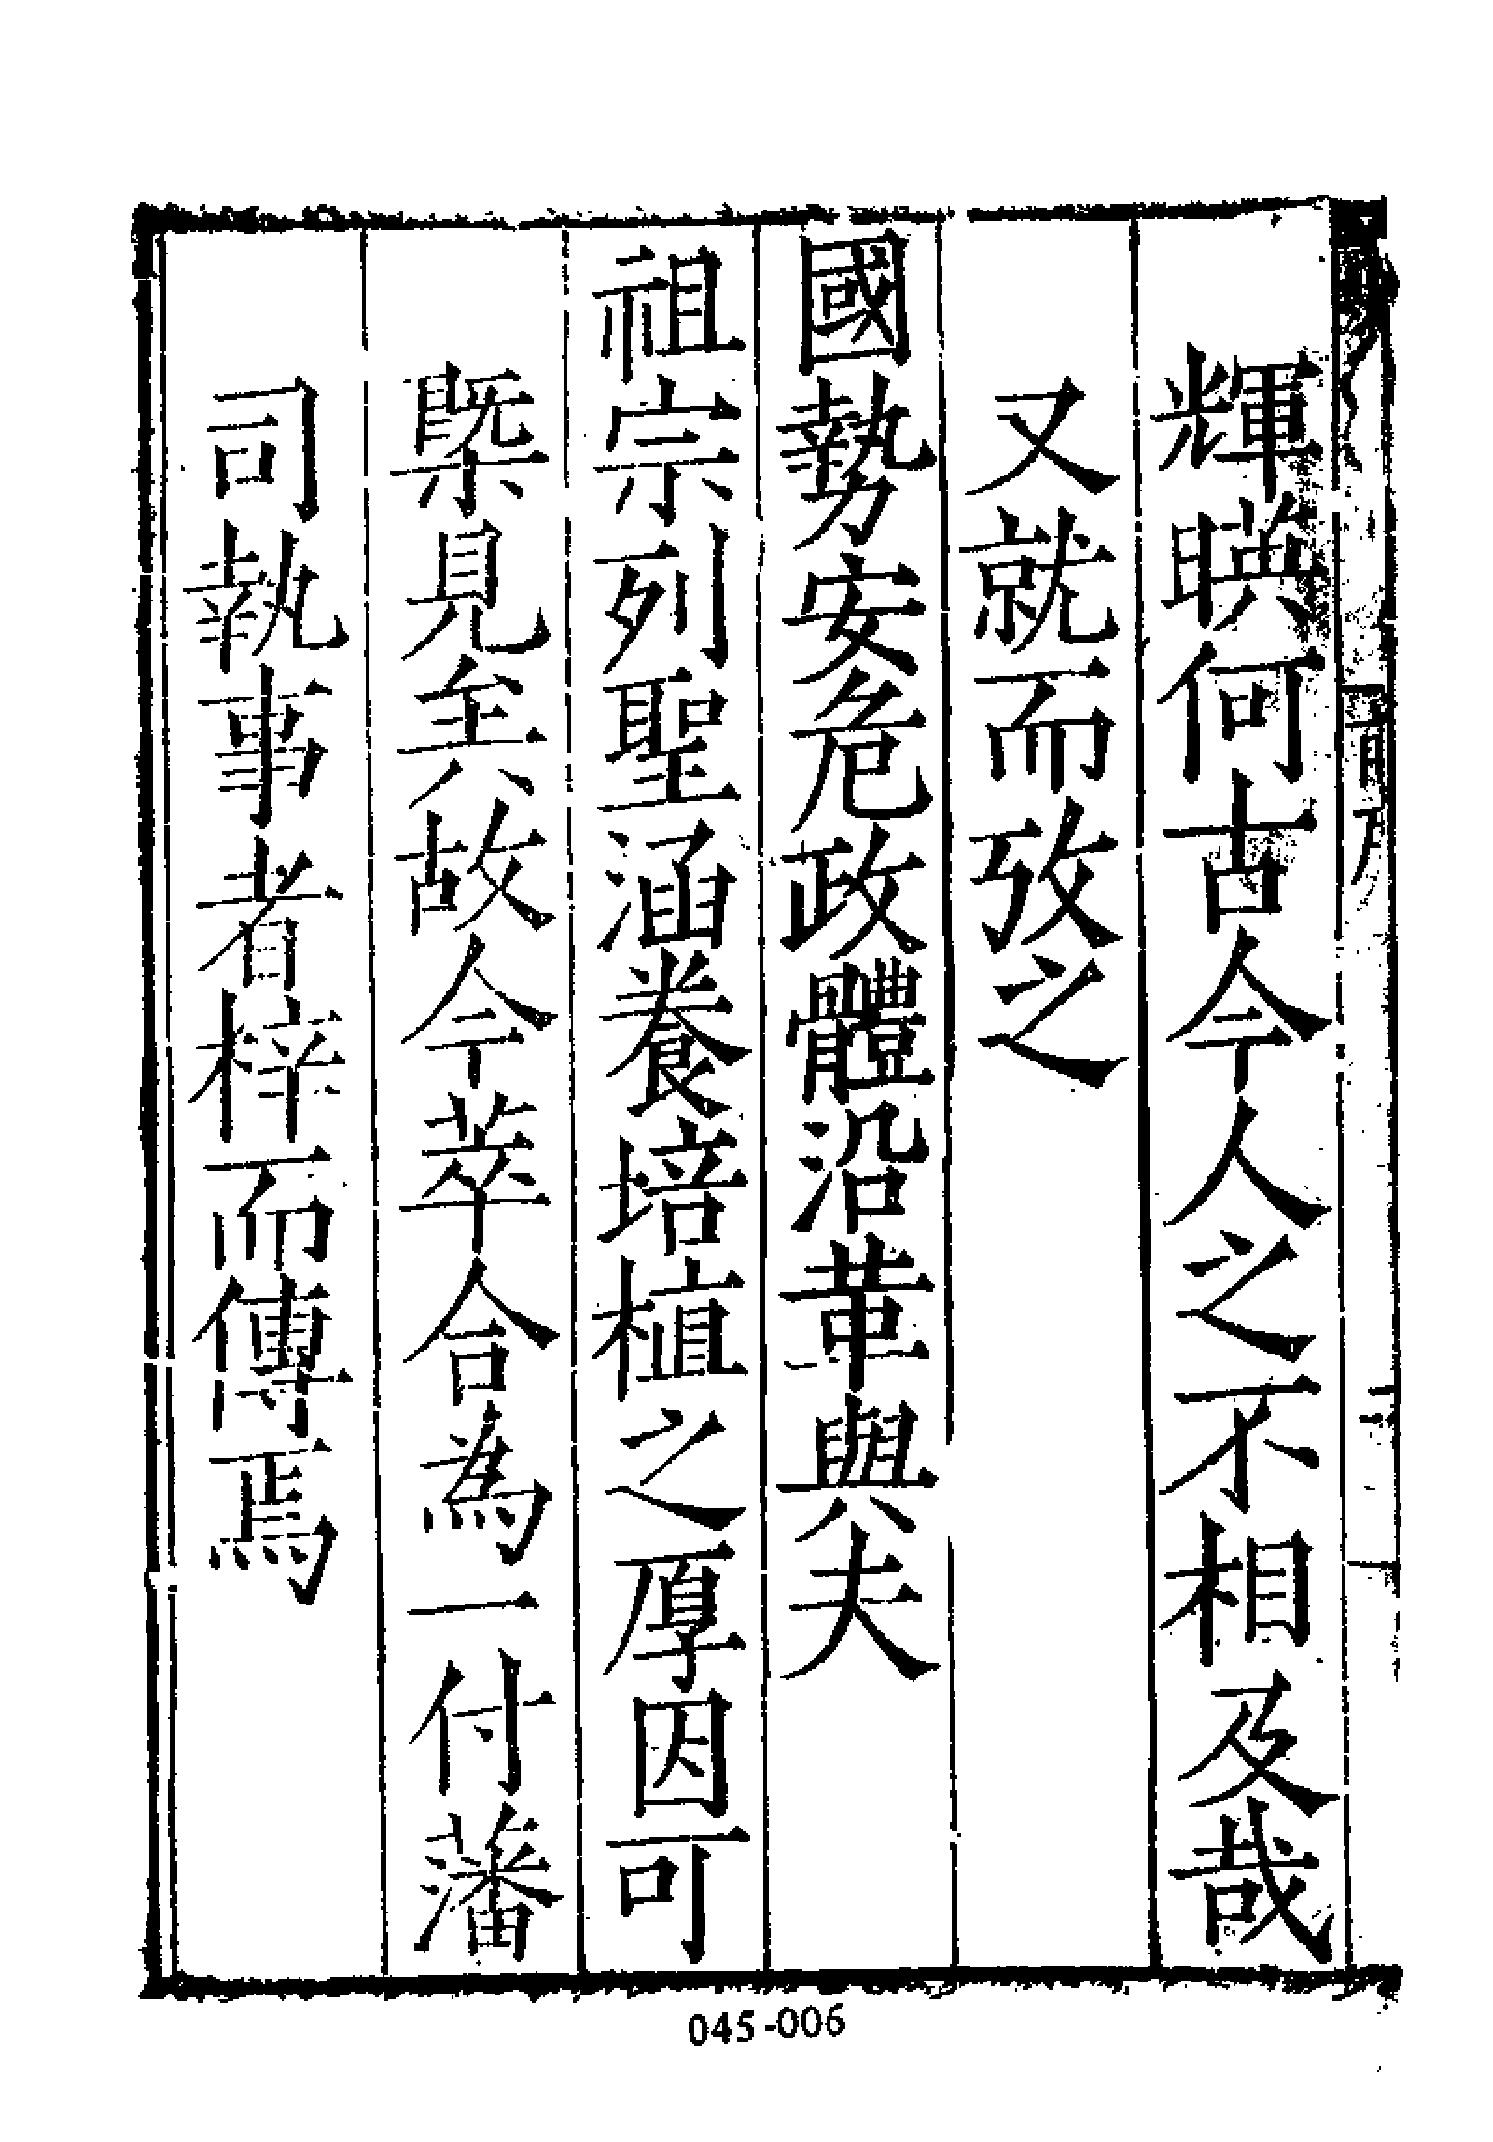 輝暎何古今人之不相及哉
又就而攷之
國勢安危政體沿革與夫
祖宗列聖涵養培植之厚因可
槩見矣故今萃合為一付藩
司執事者梓而傳焉
045-006